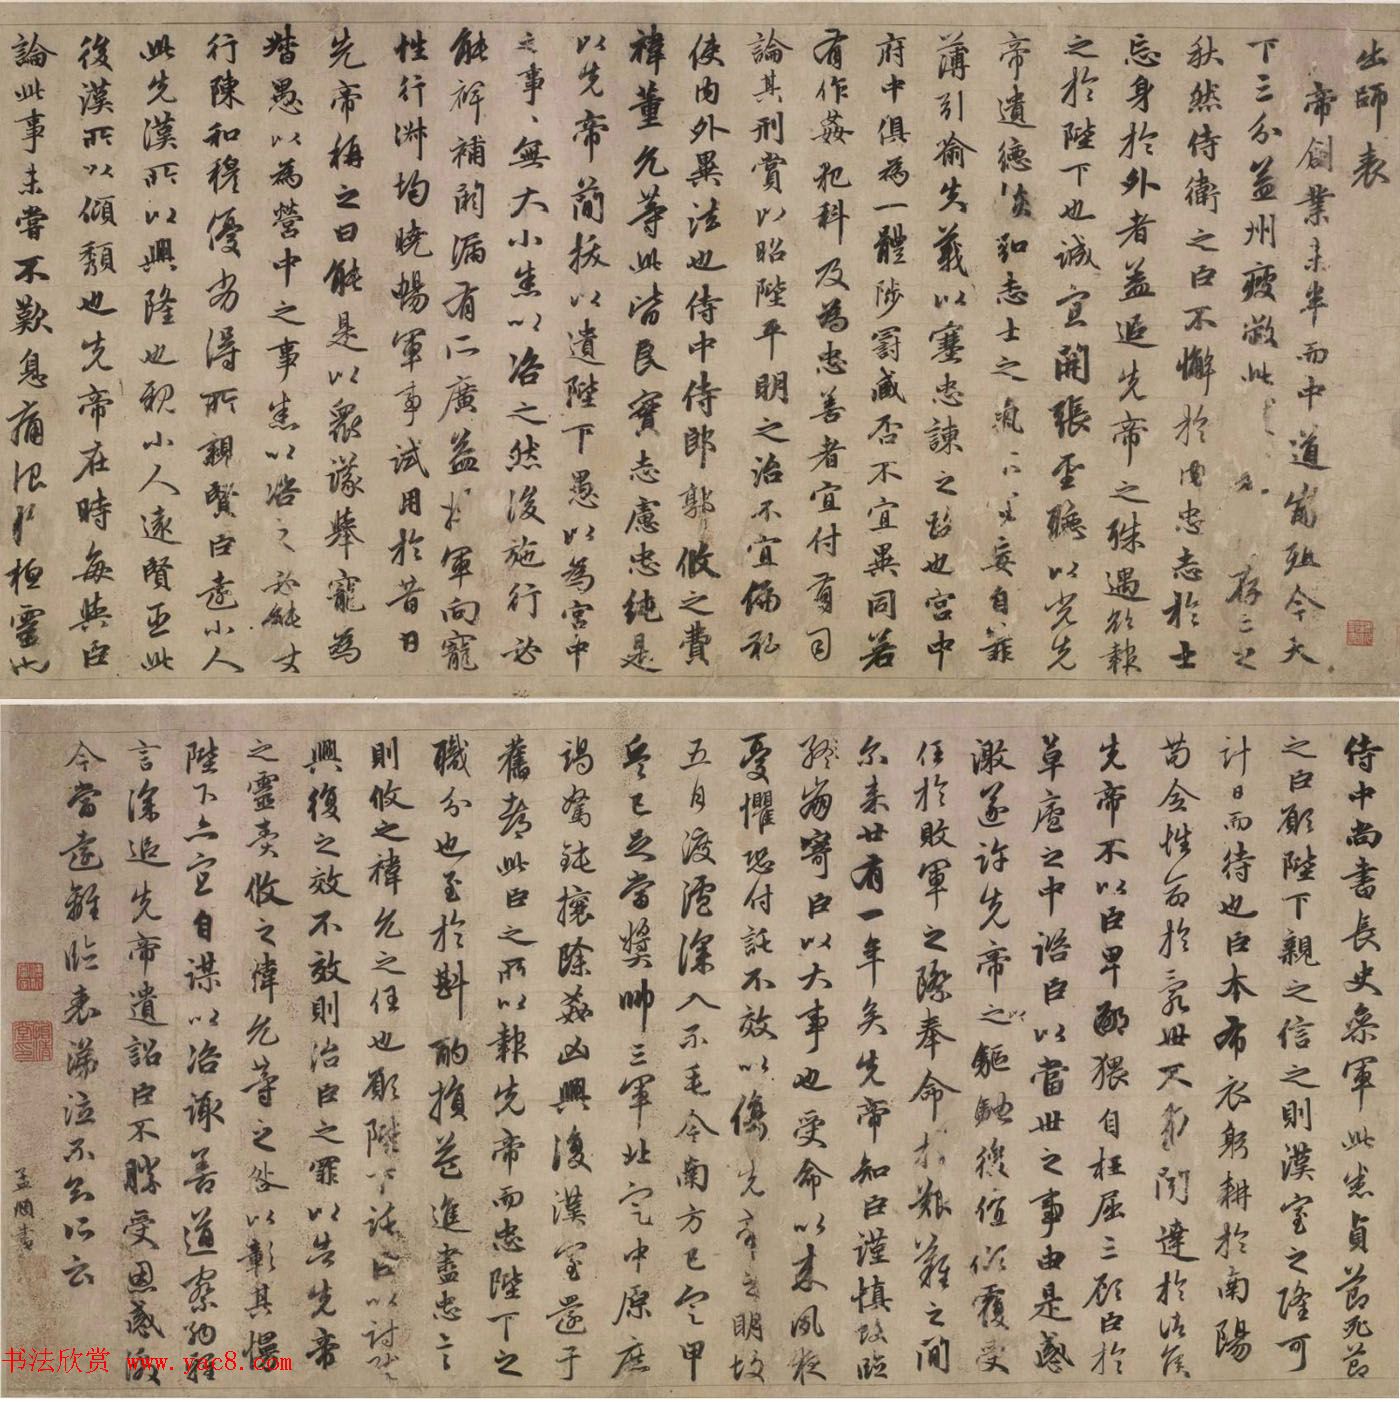 出師表
帝創業未半而中道崩殂今天
下三分益州疲敝此
存亡之
秋然侍衛之臣不懈於內忠志於士
忘身於外者蓋追先帝之殊遇欲報
之於陛下也誠宜開張聖聽以光先
帝遺德恢弘志士之氣不宜妄自菲
薄引喻失義以塞忠諫之路也宮中
府中俱為一體陟罰臧否不宜異同若
有作姦犯科及為忠善者宜付有司
論其刑賞以昭陛平明之治不宜偏私
使內外異法也侍中侍郎郭攸之費
禕董允等此皆良實志慮忠純是
以先帝簡拔以遺陛下愚以為宮中
之事、無大小悉以咨之然後施行必
能裨補闕漏有所廣益將軍向寵
性行淑均曉暢軍事試用於昔日
先帝稱之曰能是以眾議舉寵為
督愚以為營中之事悉以咨之必能使
行陳和穆優劣得所親賢臣遠小人
此先漢所以興隆也親小人遠賢臣此
後漢所以傾頹也先帝在時每與臣
論此事未嘗不歎息痛恨於桓靈也
侍中尚書長史參軍此悉貞節死節
之臣願陛下親之信之則漢室之隆可
計日而待也臣本布衣躬耕於南陽
苟全性命於亂世不求聞達於諸侯
先帝不以臣卑鄙猥自枉屈三顧臣於
草廬之中諮臣以當世之事由是感
激遂許先帝之以驅馳後值傾覆受
任於敗軍之際奉命於艱難之間
尔来廿有一年矣先帝知臣謹慎故臨
終崩寄臣以大事也受命以来夙夜
憂懼恐付託不效以傷先帝之明故
五月渡瀘深入不毛今南方已定甲
兵已足當獎帥三軍北定中原庶
竭駑鈍攘除姦凶興復漢室還于
舊都此臣之所以報先帝而忠陛下之
職分也至於斟酌損益進盡忠言
則攸之禕允之任也願陛下託臣以討賊
興復之效不效則治臣之罪以告先帝
之靈責攸之禕允等之咎以彰其慢
陛下亦宜自謀以咨諏善道察納雅
言深追先帝遺詔臣不勝受恩感激
今當遠離臨表涕泣不知所云
孟頫書
书法欣赏 www.yac8.com